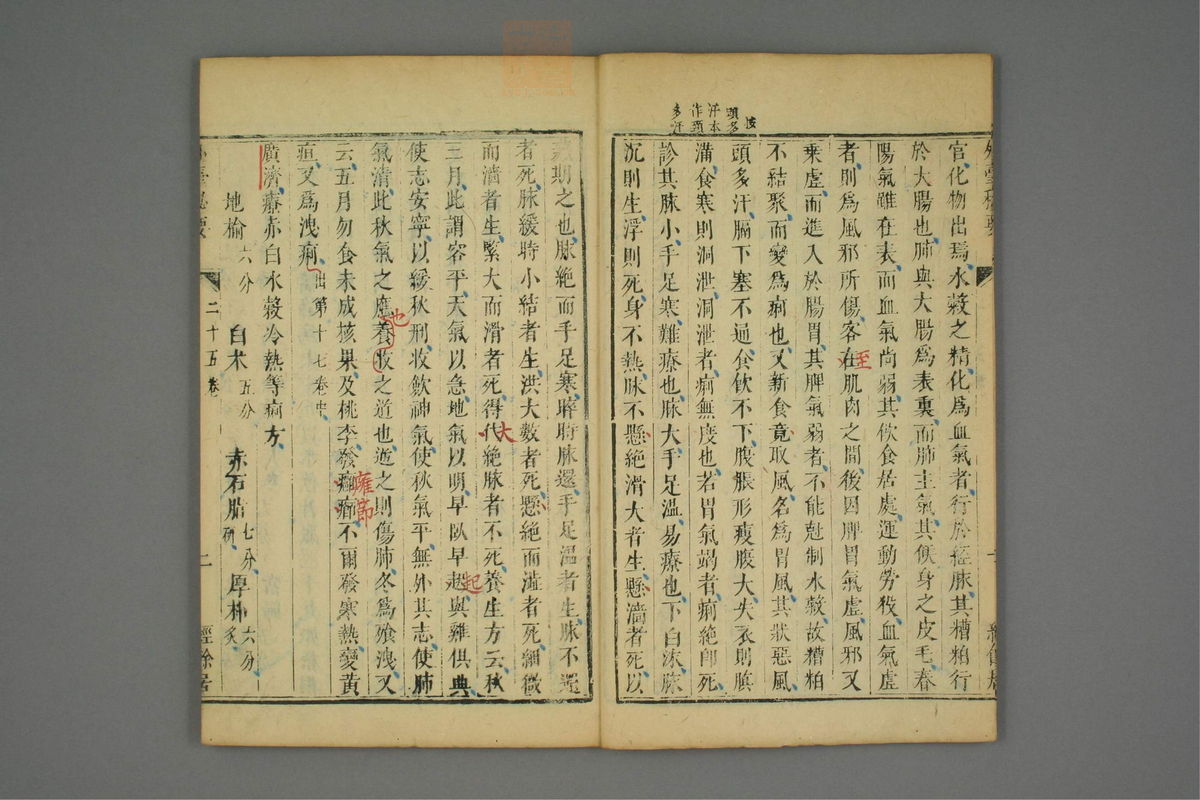 按
頭多
汗本
作頭
多汗
官化物出焉水穀之精化爲血氣者行於經脉其糟粕行
於大腸也肺與大腸爲表裏而肺主氣其候身之皮毛春
陽氣雖在表而血氣尚弱其飲食居處運動勞役血氣虛
者則爲風邪所傷客在肌肉之間後因脾胃氣虛風邪又
至
乗虛而進入於腸胃其脾氣弱者不能尅制水穀故糟粕
不結聚而變爲痢也又新食竟取風名爲胃風其狀惡風
頭多汗膈下塞不通食飲不下腹脹形瘦腹大失衣則䐜
滿食寒則洞泄洞泄者痢無度也若胃氣竭者痢絕即死
診其脉小手足寒難療也脉大手足温易療也下白沫脉
沉則生浮則死身不熱脉不懸絕滑大者生懸濇者死以
期之也脉絕而手足寒晬時脉還手足温者生脉不還
者死脉緩時小結者生洪大數者死懸絕而濇者死細微
而濇者生緊大而滑者死得代絕脉者不死養生方云秋
大
三月此謂容平天氣以急地氣以明早臥早起與雞俱典
起
使志安寧以緩秋刑收斂神氣使秋氣平無外其志使肺
氣清此秋氣之應養收之道也逆之則傷肺冬爲飱洩又
也
云五月勿食未成核果及桃李發癰癤不爾發寒熱變黃
癰節
疸又爲洩痢出第十七卷中
廣濟療赤白水穀冷熱等痢方
地榆六分 白术五分 赤石脂七分研 厚朴六分炙
二十五卷
二
經餘居